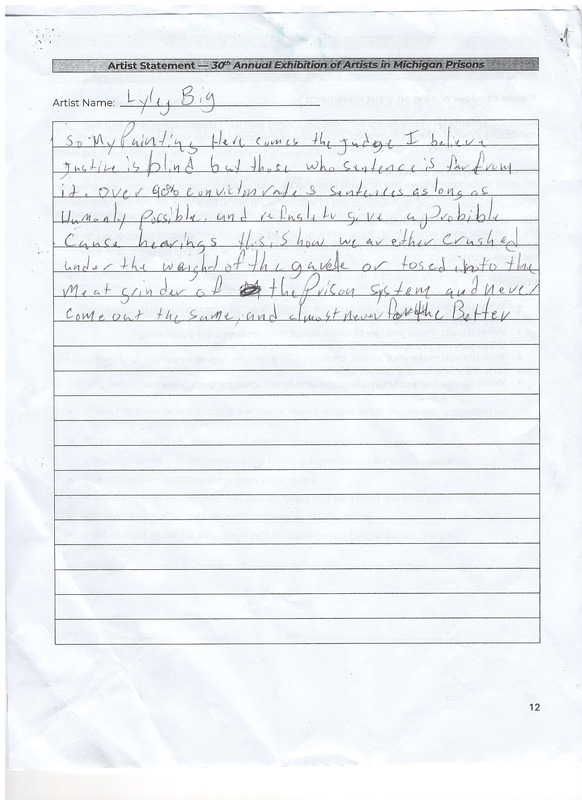 Artist Statement — 30th Annual Exhibition of Artists in Michigan Prisons
Artist Name: Lyley Big
So My Painting Here comes the judge I believe
justice is blind but those who sentence is far from
it. Over 90% conviction rate s sentences as long as
Humanly possible, and refusale to give a probible
Cause hearings this is how we are either crushed
under the weight of the gavele or tosed into the
meat grinder of the prison system and never
come out the same, and almost never for the Better
12